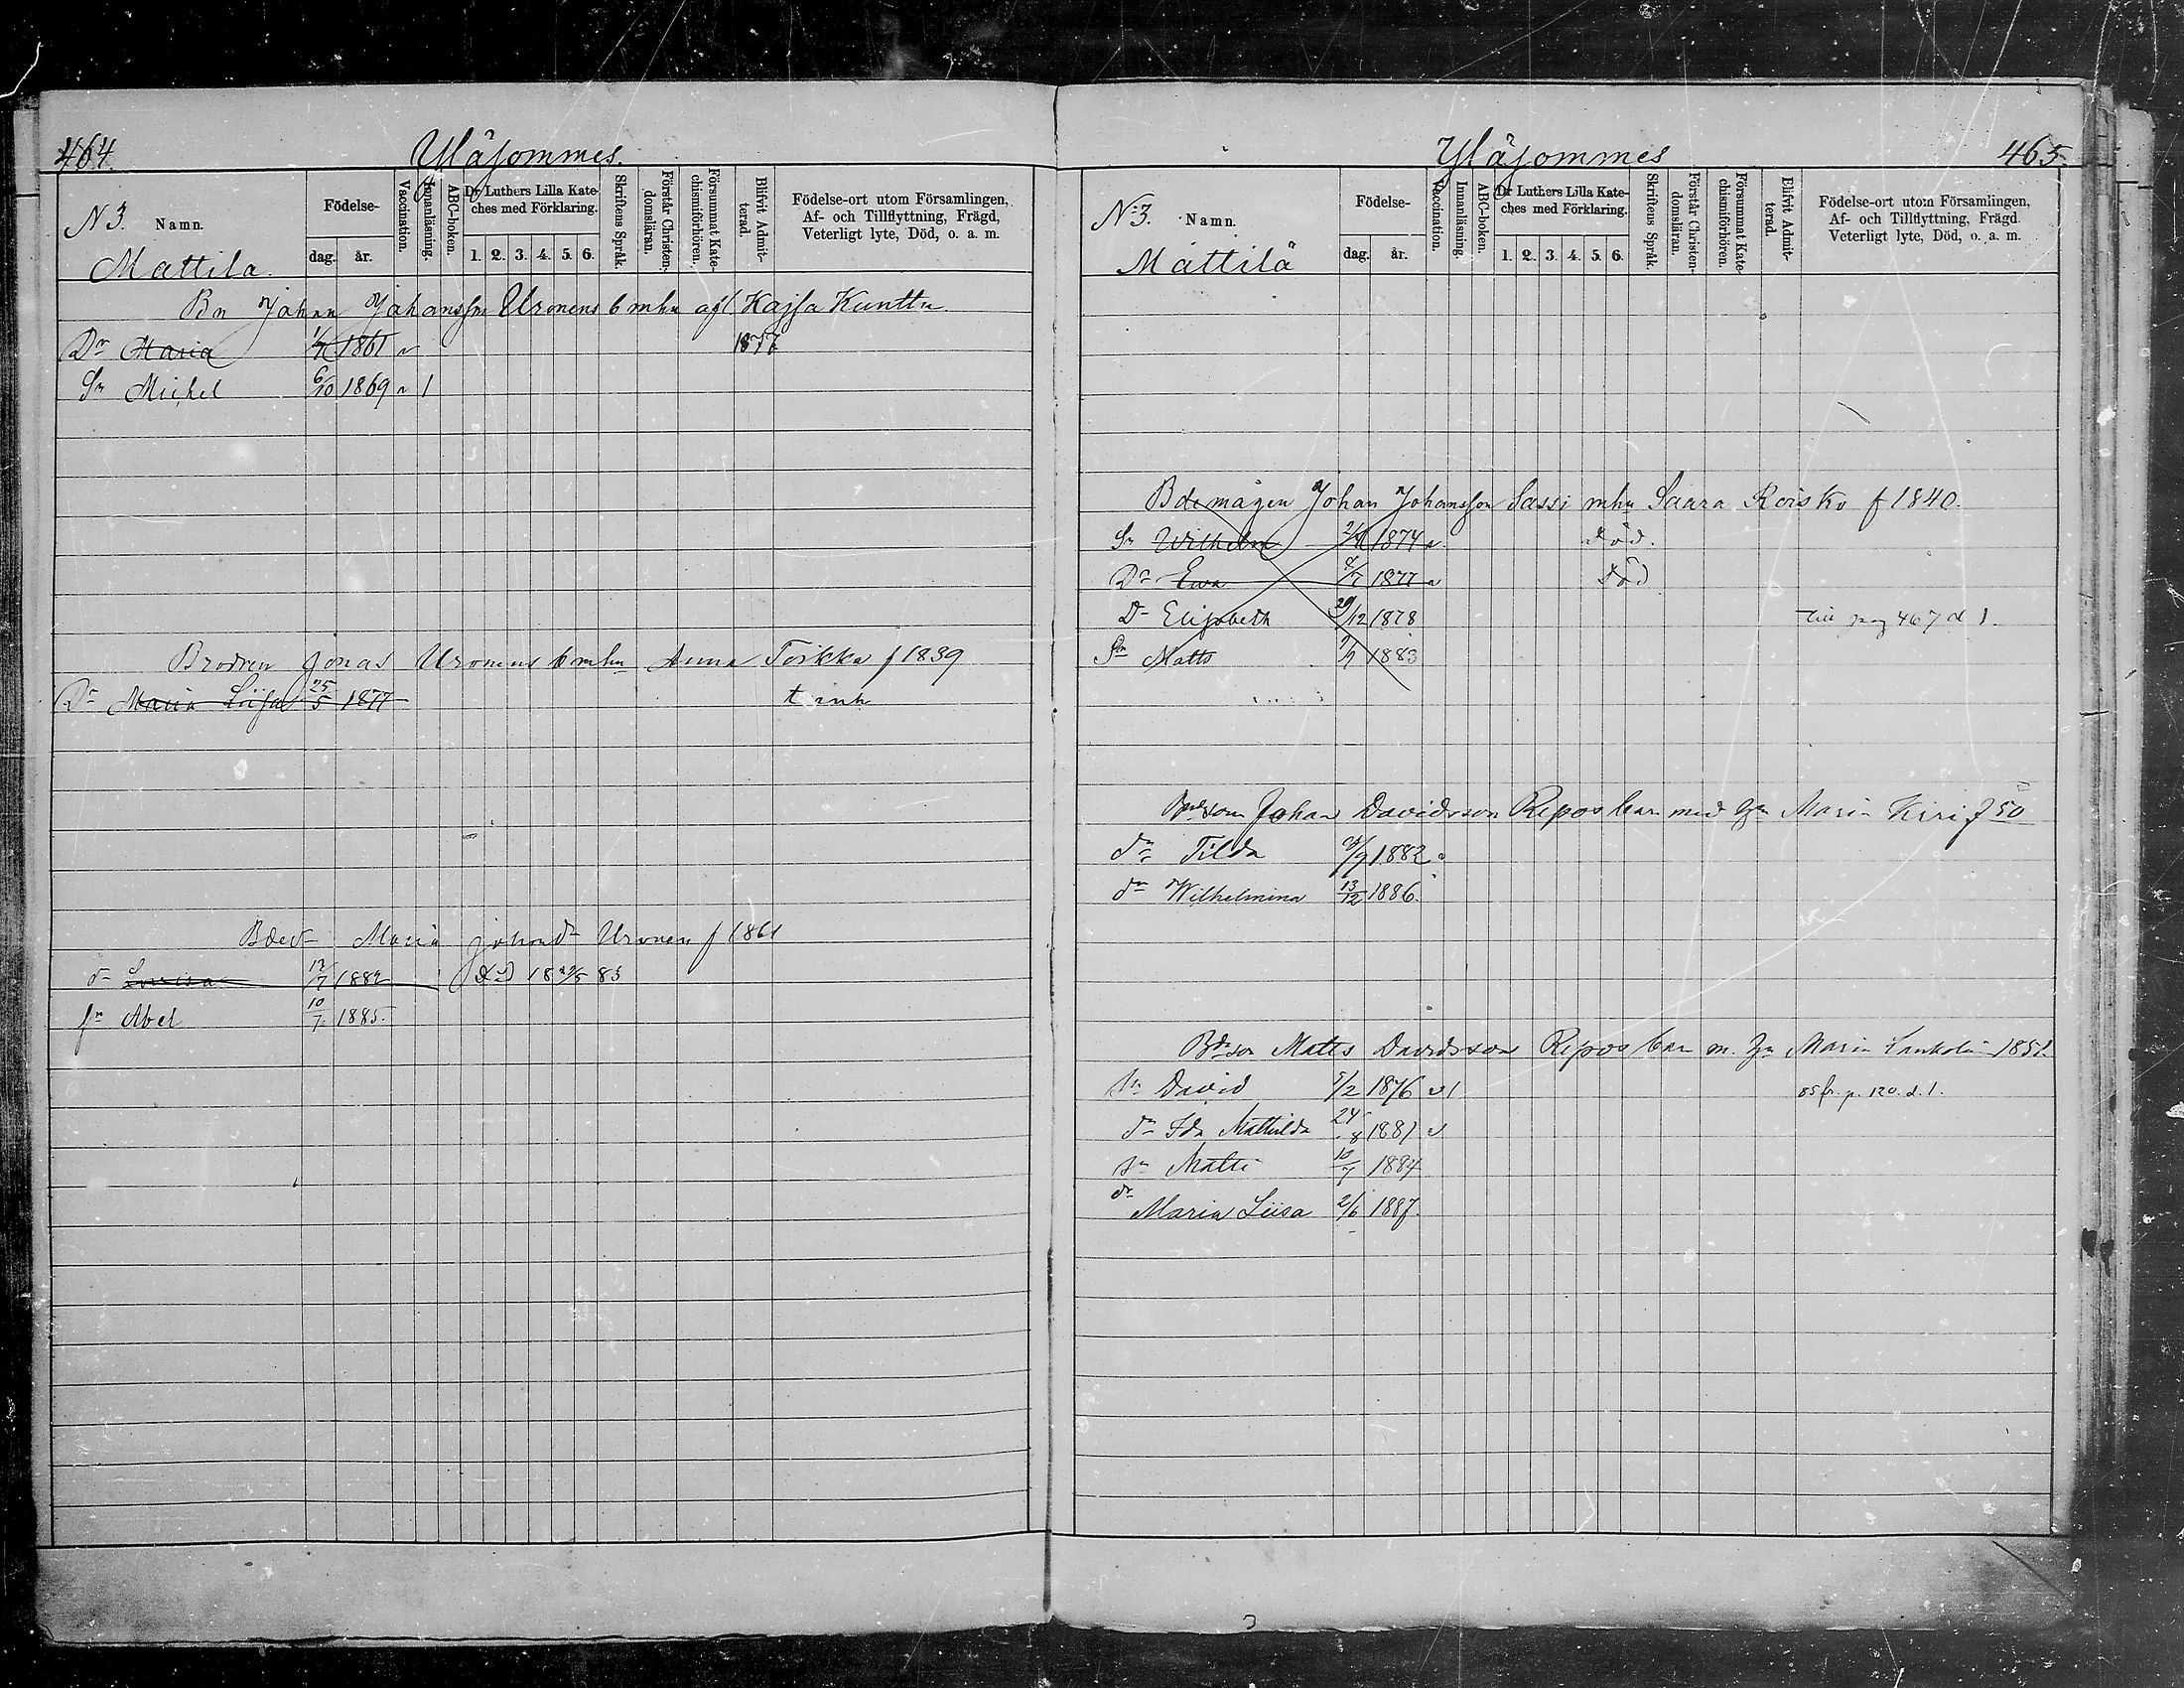 464.
Yläjommes.
N 3. Namn.
Födelse-
dag. år.
Vaccination.
Innanläsning.
ABC-boken.
Dr Luthers Lilla Kate-
ches med Förklaring.
1. 2. 3. 4. 5. 6.
Skriftens Språk.
Förstår Christen-
domsläran.
Försummat Kate-
chismiförhören.
Blifvit Admit-
terad.
Födelse-ort utom Församlingen,
Af- och Tillflyttning, Frägd,
Veterligt lyte, Död, o. a. m.
Mattila.
Bn Johan Johansson Uronens b mhu afl Kajsa Kunttu
Dr Maria 1/7 1861 v 1877
Sn Michel 6/10 1869 v 1
Brodren Jonas Uronens b mhu Anna Toikka f 1839
Dr Maria Liisa 25/5 1877
Maria Johansdr Uronen f 1861
dr 12/7 1882 83
sn Abel 10/7 1885.
Yläjommes
465.
N:3. Namn.
Födelse-
dag. år.
Vaccination.
Innanläsning.
ABC-boken.
Dr Luthers Lilla Kate-
ches med Förklaring.
1. 2. 3. 4. 5. 6.
Skriftens Språk.
Förstår Christen-
domsläran.
Försummat Kate-
chismiförhören.
Blifvit Admit-
terad.
Födelse-ort utom Församlingen,
Af- och Tillflyttning, Frägd
Veterligt lyte, Död, o. a. m.
Mattila
Bdemågen Johan Johansson Sassi mhu Saara Roisko f 1840.
Sn Wilhelm 1874 v. död.
Dr Ewa 1877 v död
Dr Elisabeth 29/12 1878 till pag 467 d 1.
Sn Matts 1883
Johan Davidsson Repos barn med hu Maria Kiri f 50
dr Tilda 1882
dr Wilhelmina 13/12 1886.
Bdeson Matts Davidsson Repos barn m. hu Maria 1851.
sn David 5/2 1876 v 1 85 fr. p. 120. d. 1.
dr Ida Mathilda 24/8 1881 v
sn Matti 10/7 1884
dr Maria Liisa 2/6 1887.